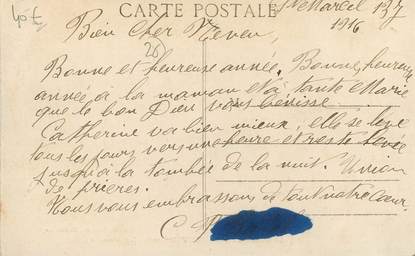 40 £
CARTE POSTALE
St Marcel
1916
Bien cher Neveu,
26
Bonne et heureuse année. Bonne, heureuse
année à la maman et à tante Marie
que le bon Dieu vous bénisse
Catherine va bien mieux, elle se lève
tous les jours vers une heure et reste levée
jusqu'à la tombée de la nuit. Union
de prières.
Nous vous embrassons de tout notre cœur.